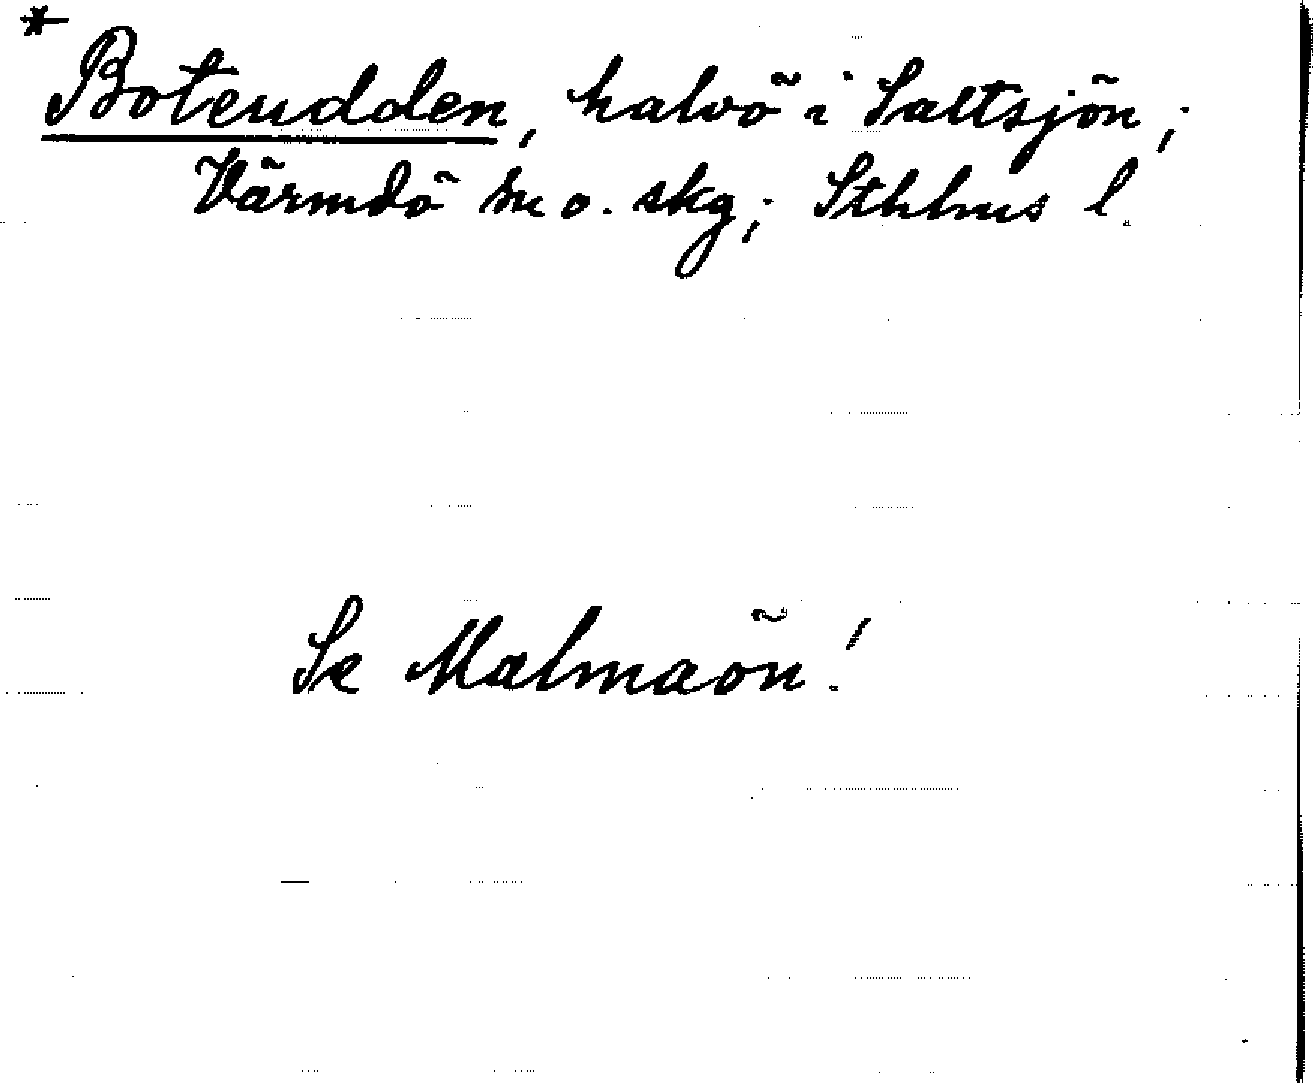 *
Boteudden, halvö i Saltsjön;
Värmdö sn o. skg; Sthlms l.
Se Malmaön!